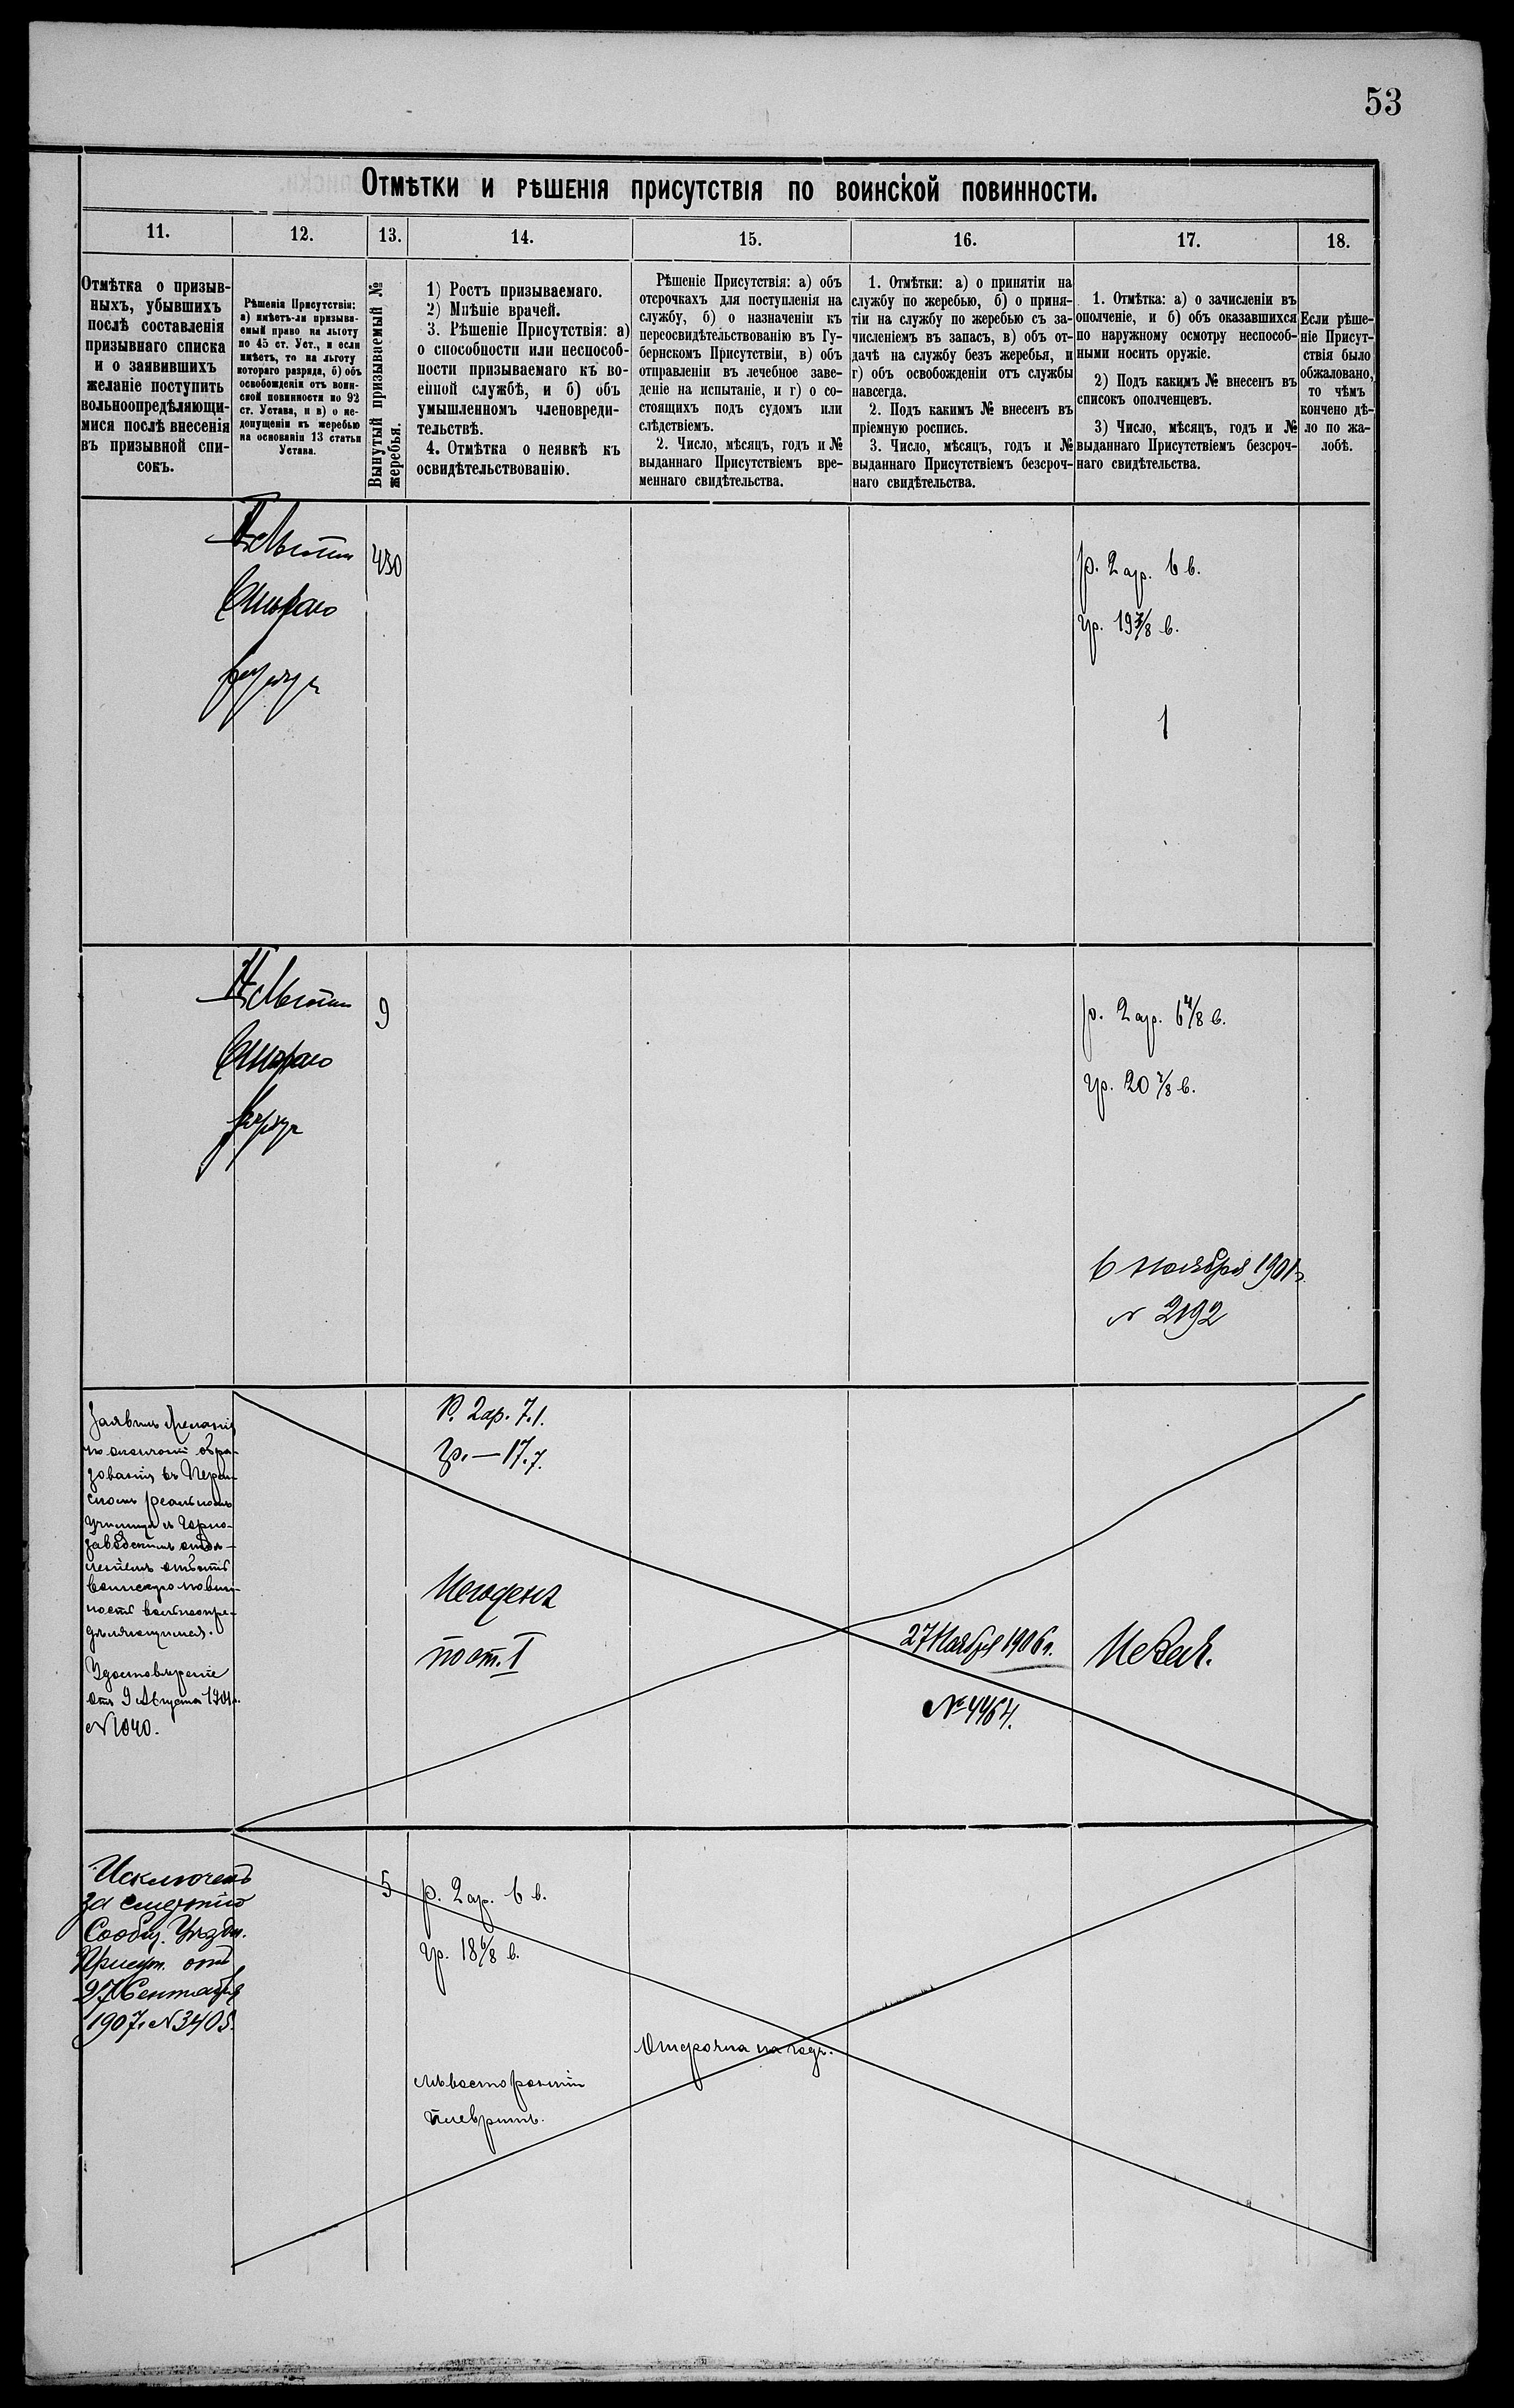 53
Отмѣтки и рѣшенія присутствія по воинской повинности.
11.
12.
13.
14.
15.
16.
17.
18.
Отмѣтка о призыв-
ныхъ, убывшихъ
послѣ составленія
призывнаго списка
и о заявившихъ
желаніе поступить
вольноопредѣляющи-
мися послѣ внесенія
въ призывной спи-
сокъ.
Рѣшенія Присутствія:
а) имѣетъ-ли призыва-
емый право на льготу
по 45 ст. Уст., и если
имѣетъ, то на льготу
котораго разряда, б) объ
освобожденіи отъ воин-
ской повинности по 92
ст. Устава, и в) о не-
допущеніи къ жеребью
на основаніи 13 статьи
Устава.
Вынутый призываемый №
жеребья.
1) Ростъ призываемаго.
2) Мнѣніе врачей.
3. Рѣшеніе Присутствія: а)
о способности или неспособ-
ности призываемаго къ во-
енной службѣ, и б) объ
умышленномъ членовреди-
тельствѣ.
4. Отмѣтка о неявкѣ къ
освидѣтельствованію.
Рѣшеніе Присутствія: а) объ
отсрочкахъ для поступленія на
службу, б) о назначеніи къ
переосвидѣтельствованію въ Гу-
бернскомъ Присутствіи, в) объ
отправленіи въ лечебное заве-
деніе на испытаніе, и г) о со-
стоящихъ подъ судомъ или
слѣдствіемъ.
2. Число, мѣсяцъ, годъ и №
выданнаго Присутствіемъ вре-
меннаго свидѣтельства.
1. Отмѣтки: а) о принятіи на
службу по жеребью, б) о приня-
тіи на службу по жеребью съ за-
численіемъ въ запасъ, в) объ от-
дачѣ на службу безъ жеребья, и
г) объ освобожденіи отъ службы
навсегда.
2. Подъ какимъ № внесенъ въ
пріемную роспись.
3. Число, мѣсяцъ, годъ и №
выданнаго Присутствіемъ безсроч-
наго свидѣтельства.
1. Отмѣтка: а) о зачисленіи въ
ополченіе, и б) объ оказавшихся
по наружному осмотру неспособ-
ными носить оружіе.
2) Подъ какимъ № внесенъ въ
списокъ ополченцевъ.
3) Число, мѣсяцъ, годъ и №
выданнаго Присутствіемъ безсроч-
наго свидѣтельства.
Если рѣше-
ніе Присут-
ствія было
обжаловано,
то чѣмъ
кончено дѣ-
ло по жа-
лобѣ.
430
р. 2 ар. 6 в.
гр. 19 7/8 в.
1
9
р. 2 ар. 6 4/8 в.
гр. 20 7/8 в.
6 Ноября 1901 г.
№ 2192
Заявилъ желаніе
по окончаніи обра-
зованія въ Перм-
скомъ реальномъ
училищѣ съ Горно-
заводскимъ отдѣ-
леніемъ отбыть
воинскую повин-
ность вольноопре-
дѣляющимся.
Удостовѣреніе
отъ 9 Августа 1901 г.
№ 1040.
Р. 2 ар. 7.1.
Гр. — 17.7.
Негоденъ
по ст. I
27 Ноября 1906 г.
№ 4464.
5
Исключенъ
за смертію
Сообщ. Уѣздн.
Присут. отъ
27 Сентября
1907 г. № 3405.
р. 2 ар. 6 в.
гр. 18 6/8 в.
лѣвосторонній
плевритъ.
Отсрочка на годъ.